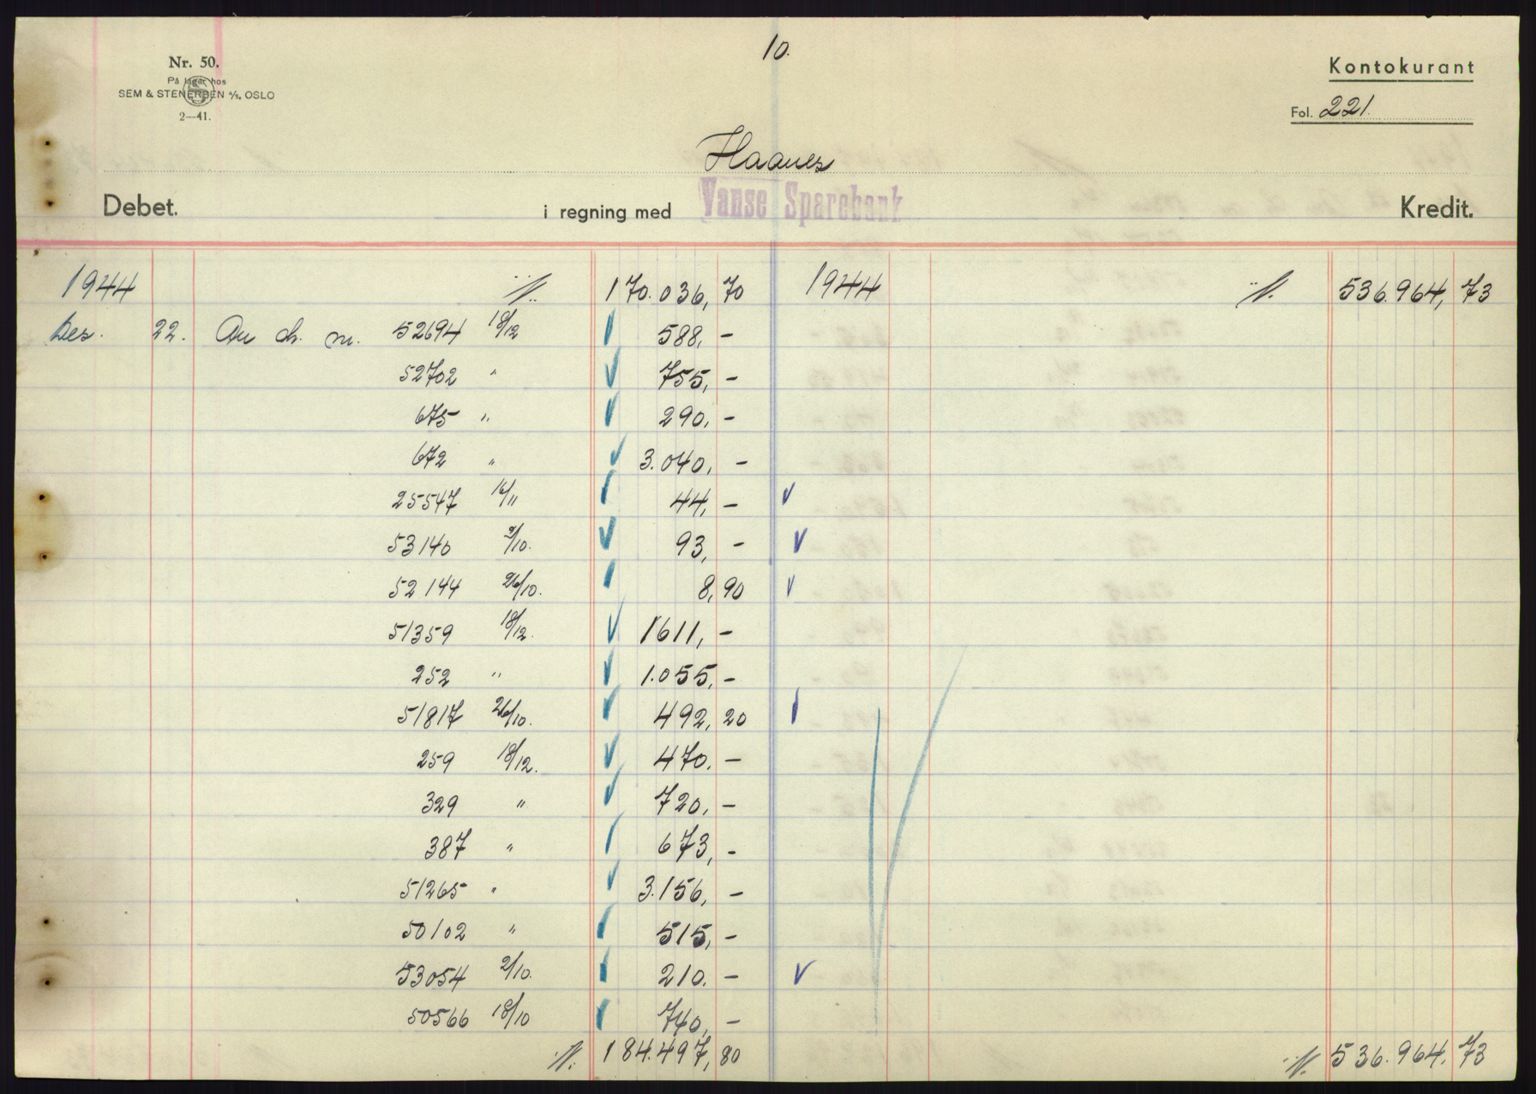 10.
Nr. 50.
På lager hos
SEM & STENERSEN A/S, OSLO
2—41.
Kontokurant
Fol. 221.
Haanes
Debet. i regning med Vanse Sparebank Kredit.
1944 170.036,70 1944 536.964,73
Des. 22. An ch. nr. 52694 18/12 588,-
52702 " 755,-
675 " 290,-
672 " 3.040,-
25547 16/11 44,-
53140 2/10. 93,-
52144 26/10. 8,90
51359 18/12. 1611,-
252 " 1.055,-
51817 26/10. 492,20
259 18/12. 470.-
329 " 720,-
387 " 673,-
51265 " 3.156,-
50102 " 515,-
53054 2/10. 210.-
50566 18/10 740,-
184.497,80 536.964,73